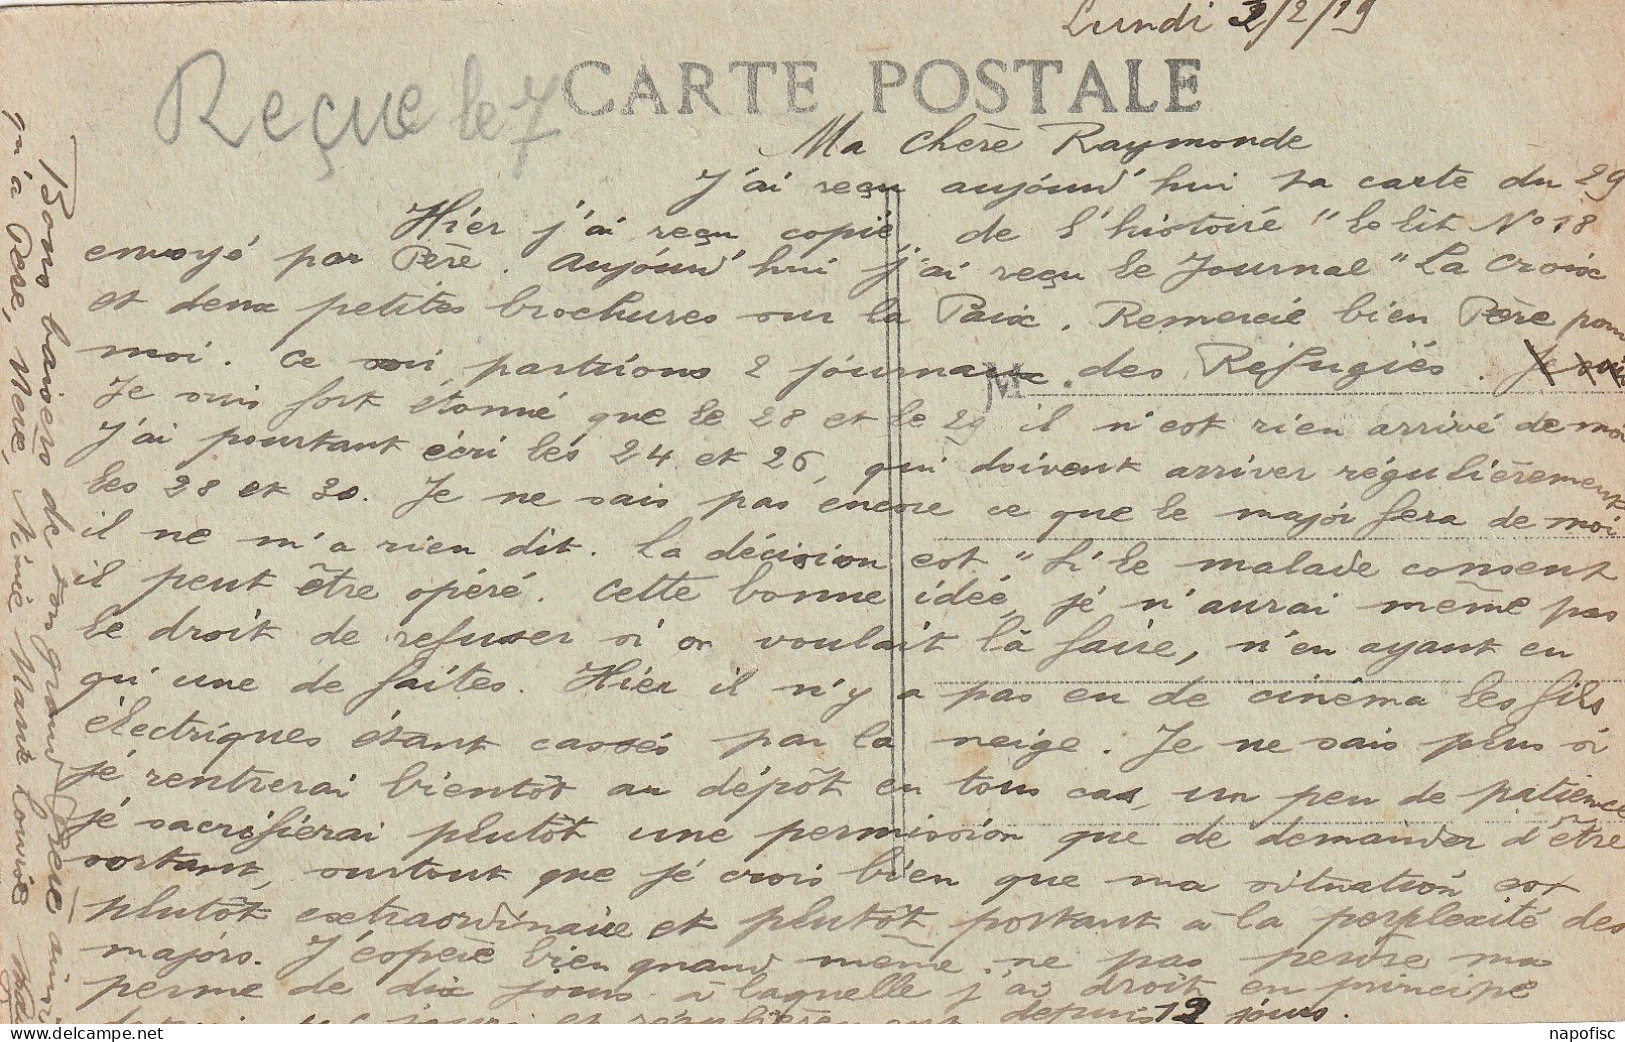 Lundi 3/2/19
Reçue le 7
CARTE POSTALE
Ma chère Raymonde
J'ai reçu aujourd'hui ta carte du 29
Hier j'ai reçu copie de l'histoire "Le lit No 18
envoyé par Père. Aujourd'hui j'ai reçu le Journal "La Croix
et deux petites brochures sur la Paix. Remercie bien Père pour
moi. Ce soir partions 2 journaux des Réfugiés. Je suis
Je suis fort étonné que le 28 et le 29 il n'est rien arrivé de moi
J'ai pourtant écri lés 24 et 26, qui doivent arriver régulièrement
les 28 et 30. Je ne sais pas encore ce que le major fera de moi
il ne m'a rien dit. La décision est "Si le malade consent
il peut être opéré. Cette bonne idée, je n'aurai même pas
le droit de refuser si on voulait la faire, n'en ayant eu
qu'une de faites. Hier il n'y a pas eu de cinéma les fils
électriques étant cassés par la neige. Je ne sais plus si
je rentrerai bientôt au dépôt en tous cas, un peu de patience
je sacrifierai plutôt une permission que de demander d'être
sortant, surtout que je crois bien que ma situation est
plutôt extraordinaire et plutôt portant à la perplexité des
majors. J'éspère bien quand même ne pas perdre ma
perme de dix jours à laquelle j'ai droit en principe
depuis 12 jours.
Bons baisers de ton grand Frère ainsi
qu'à Père, Mère, Aimée Mante Louise
M
napofisc